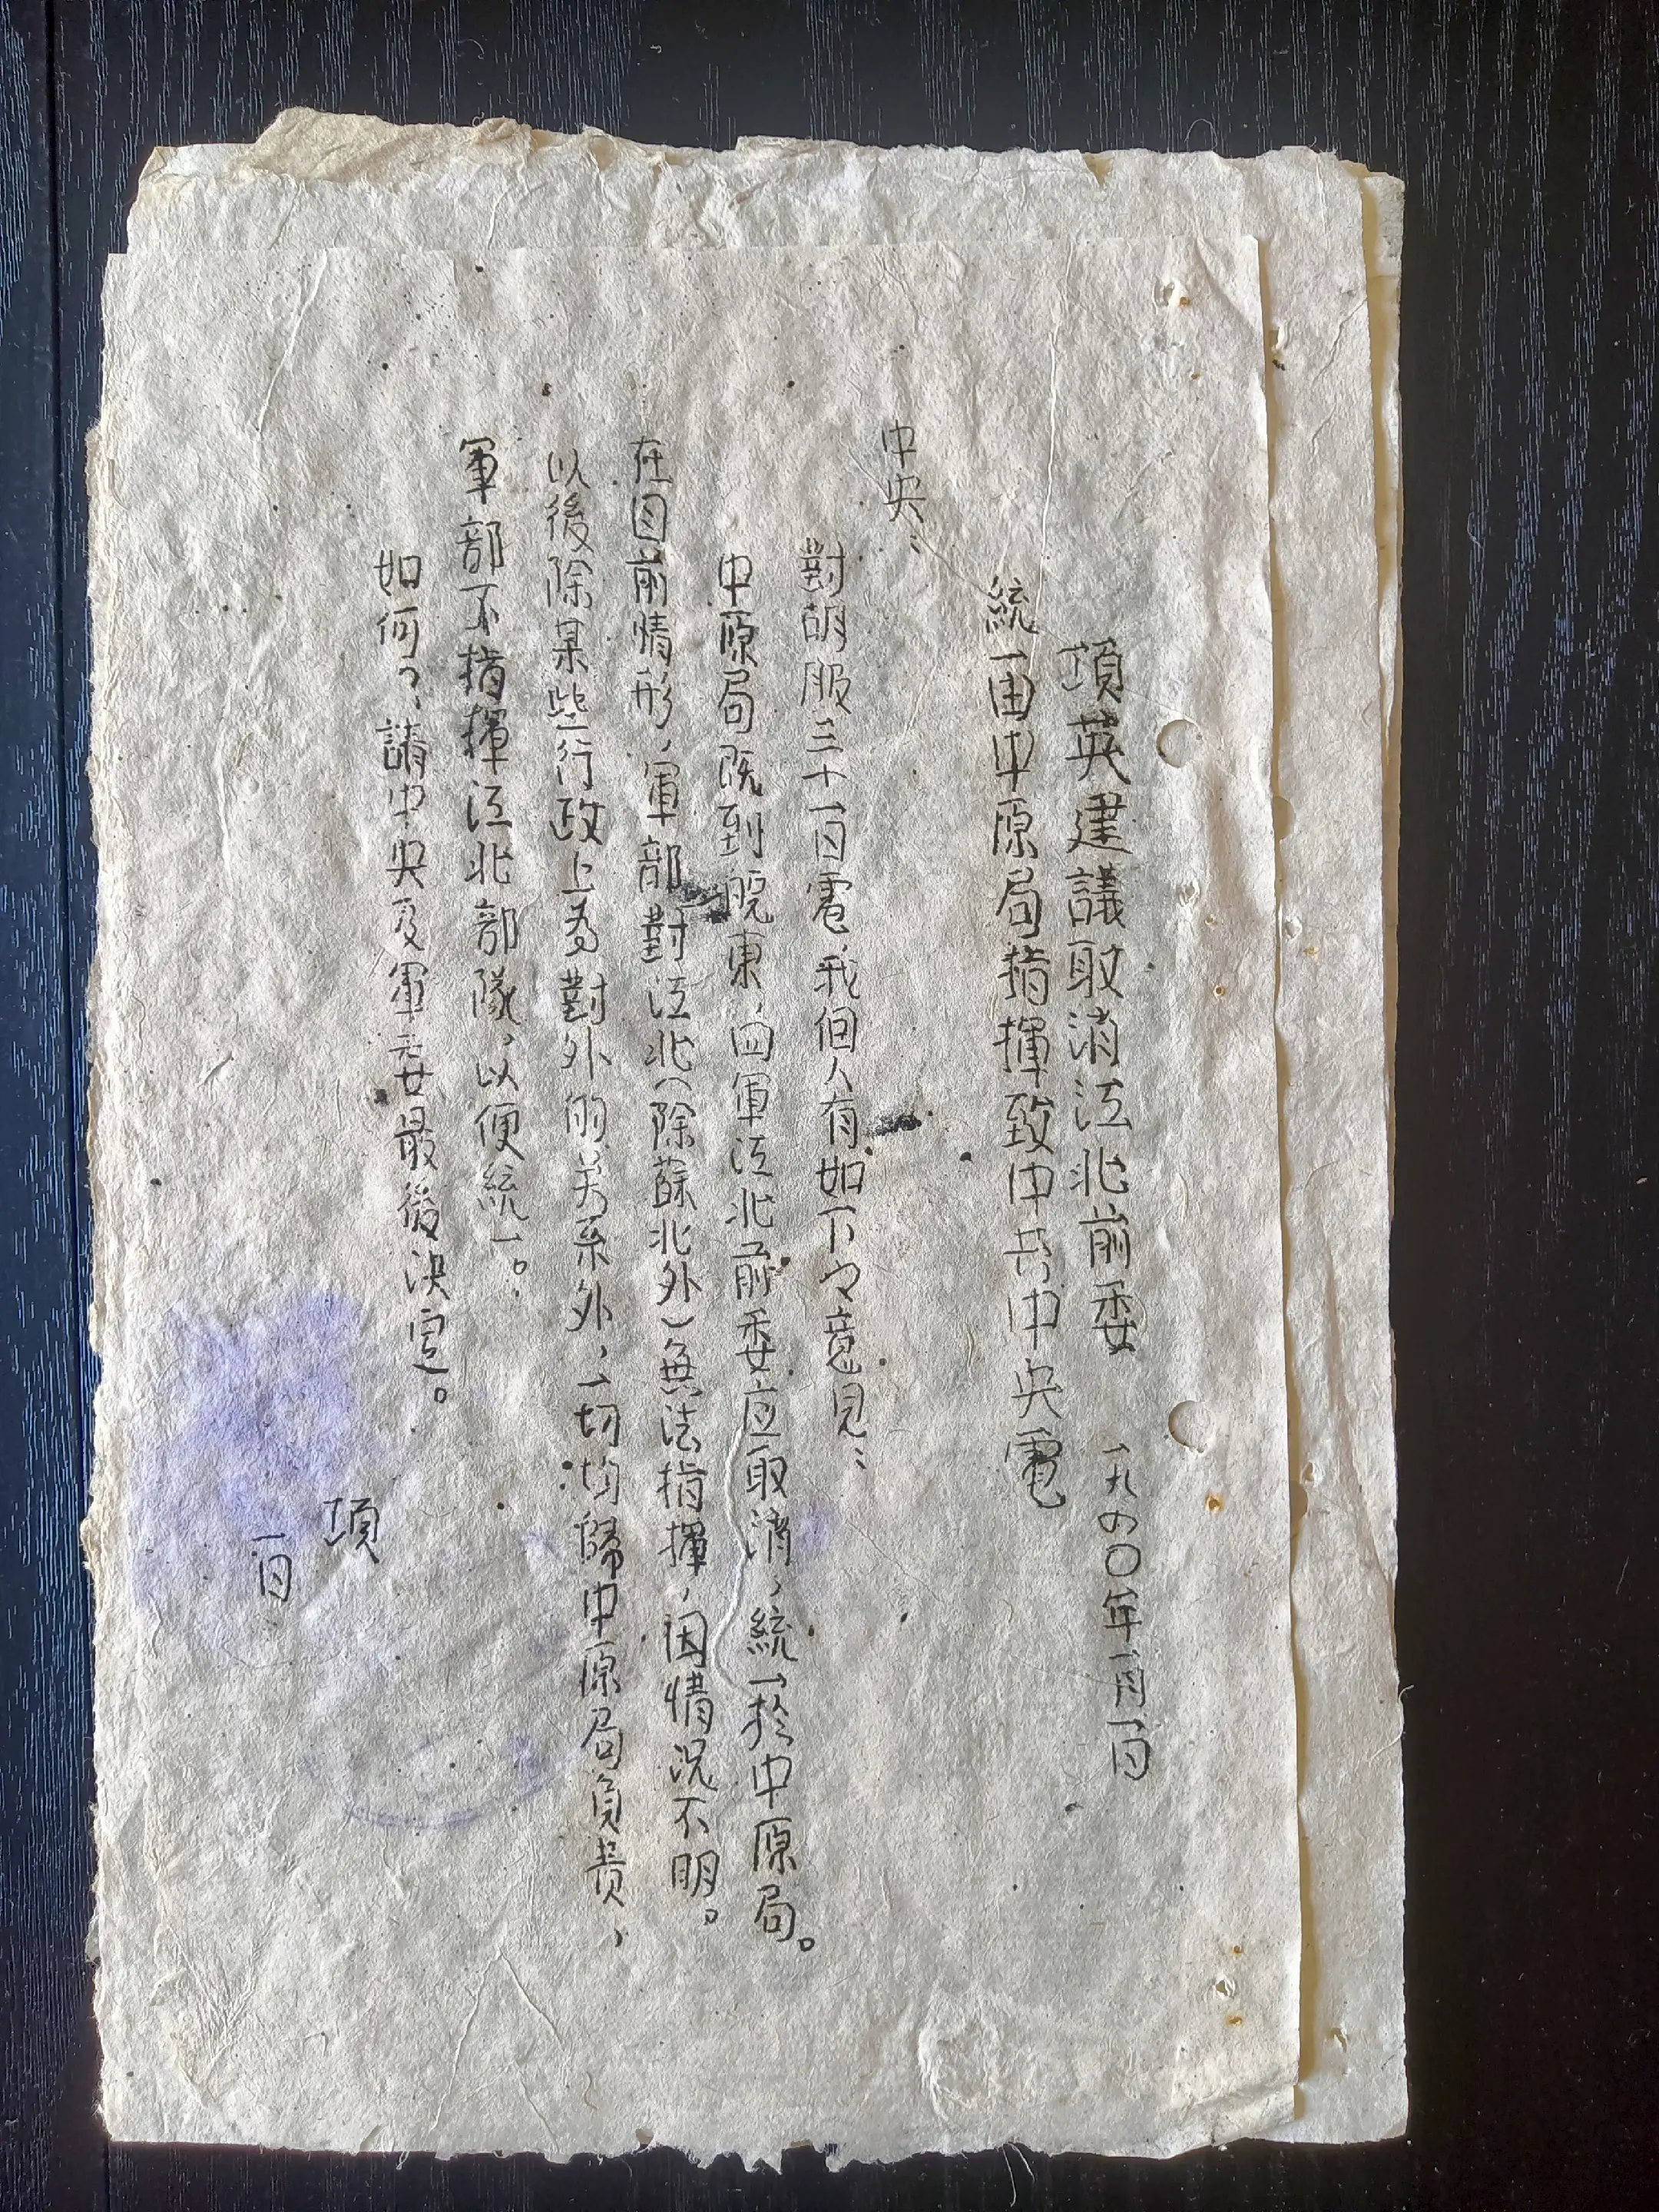 項英建議取消江北前委 一九四〇年一月一日
統一由中原局指揮致中共中央電
中央：
對胡服三十一日電，我個人有如下之意見：
中原局既到皖東，四軍江北前委应取消，統一於中原局。
在目前情形，軍部對江北（除蘇北外）無法指揮，因情况不明。
以後除某些行政上為對外的关系外，一切均歸中原局負責，
軍部不指揮江北部隊，以便統一。
如何？請中央及軍委最後决定。
項
一日